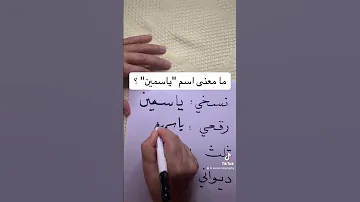 ما معنى اسم "ياسمين" ؟
نسخي : ياسمين
رقعي : ياسم
ثلث :
ديواني
TikTok